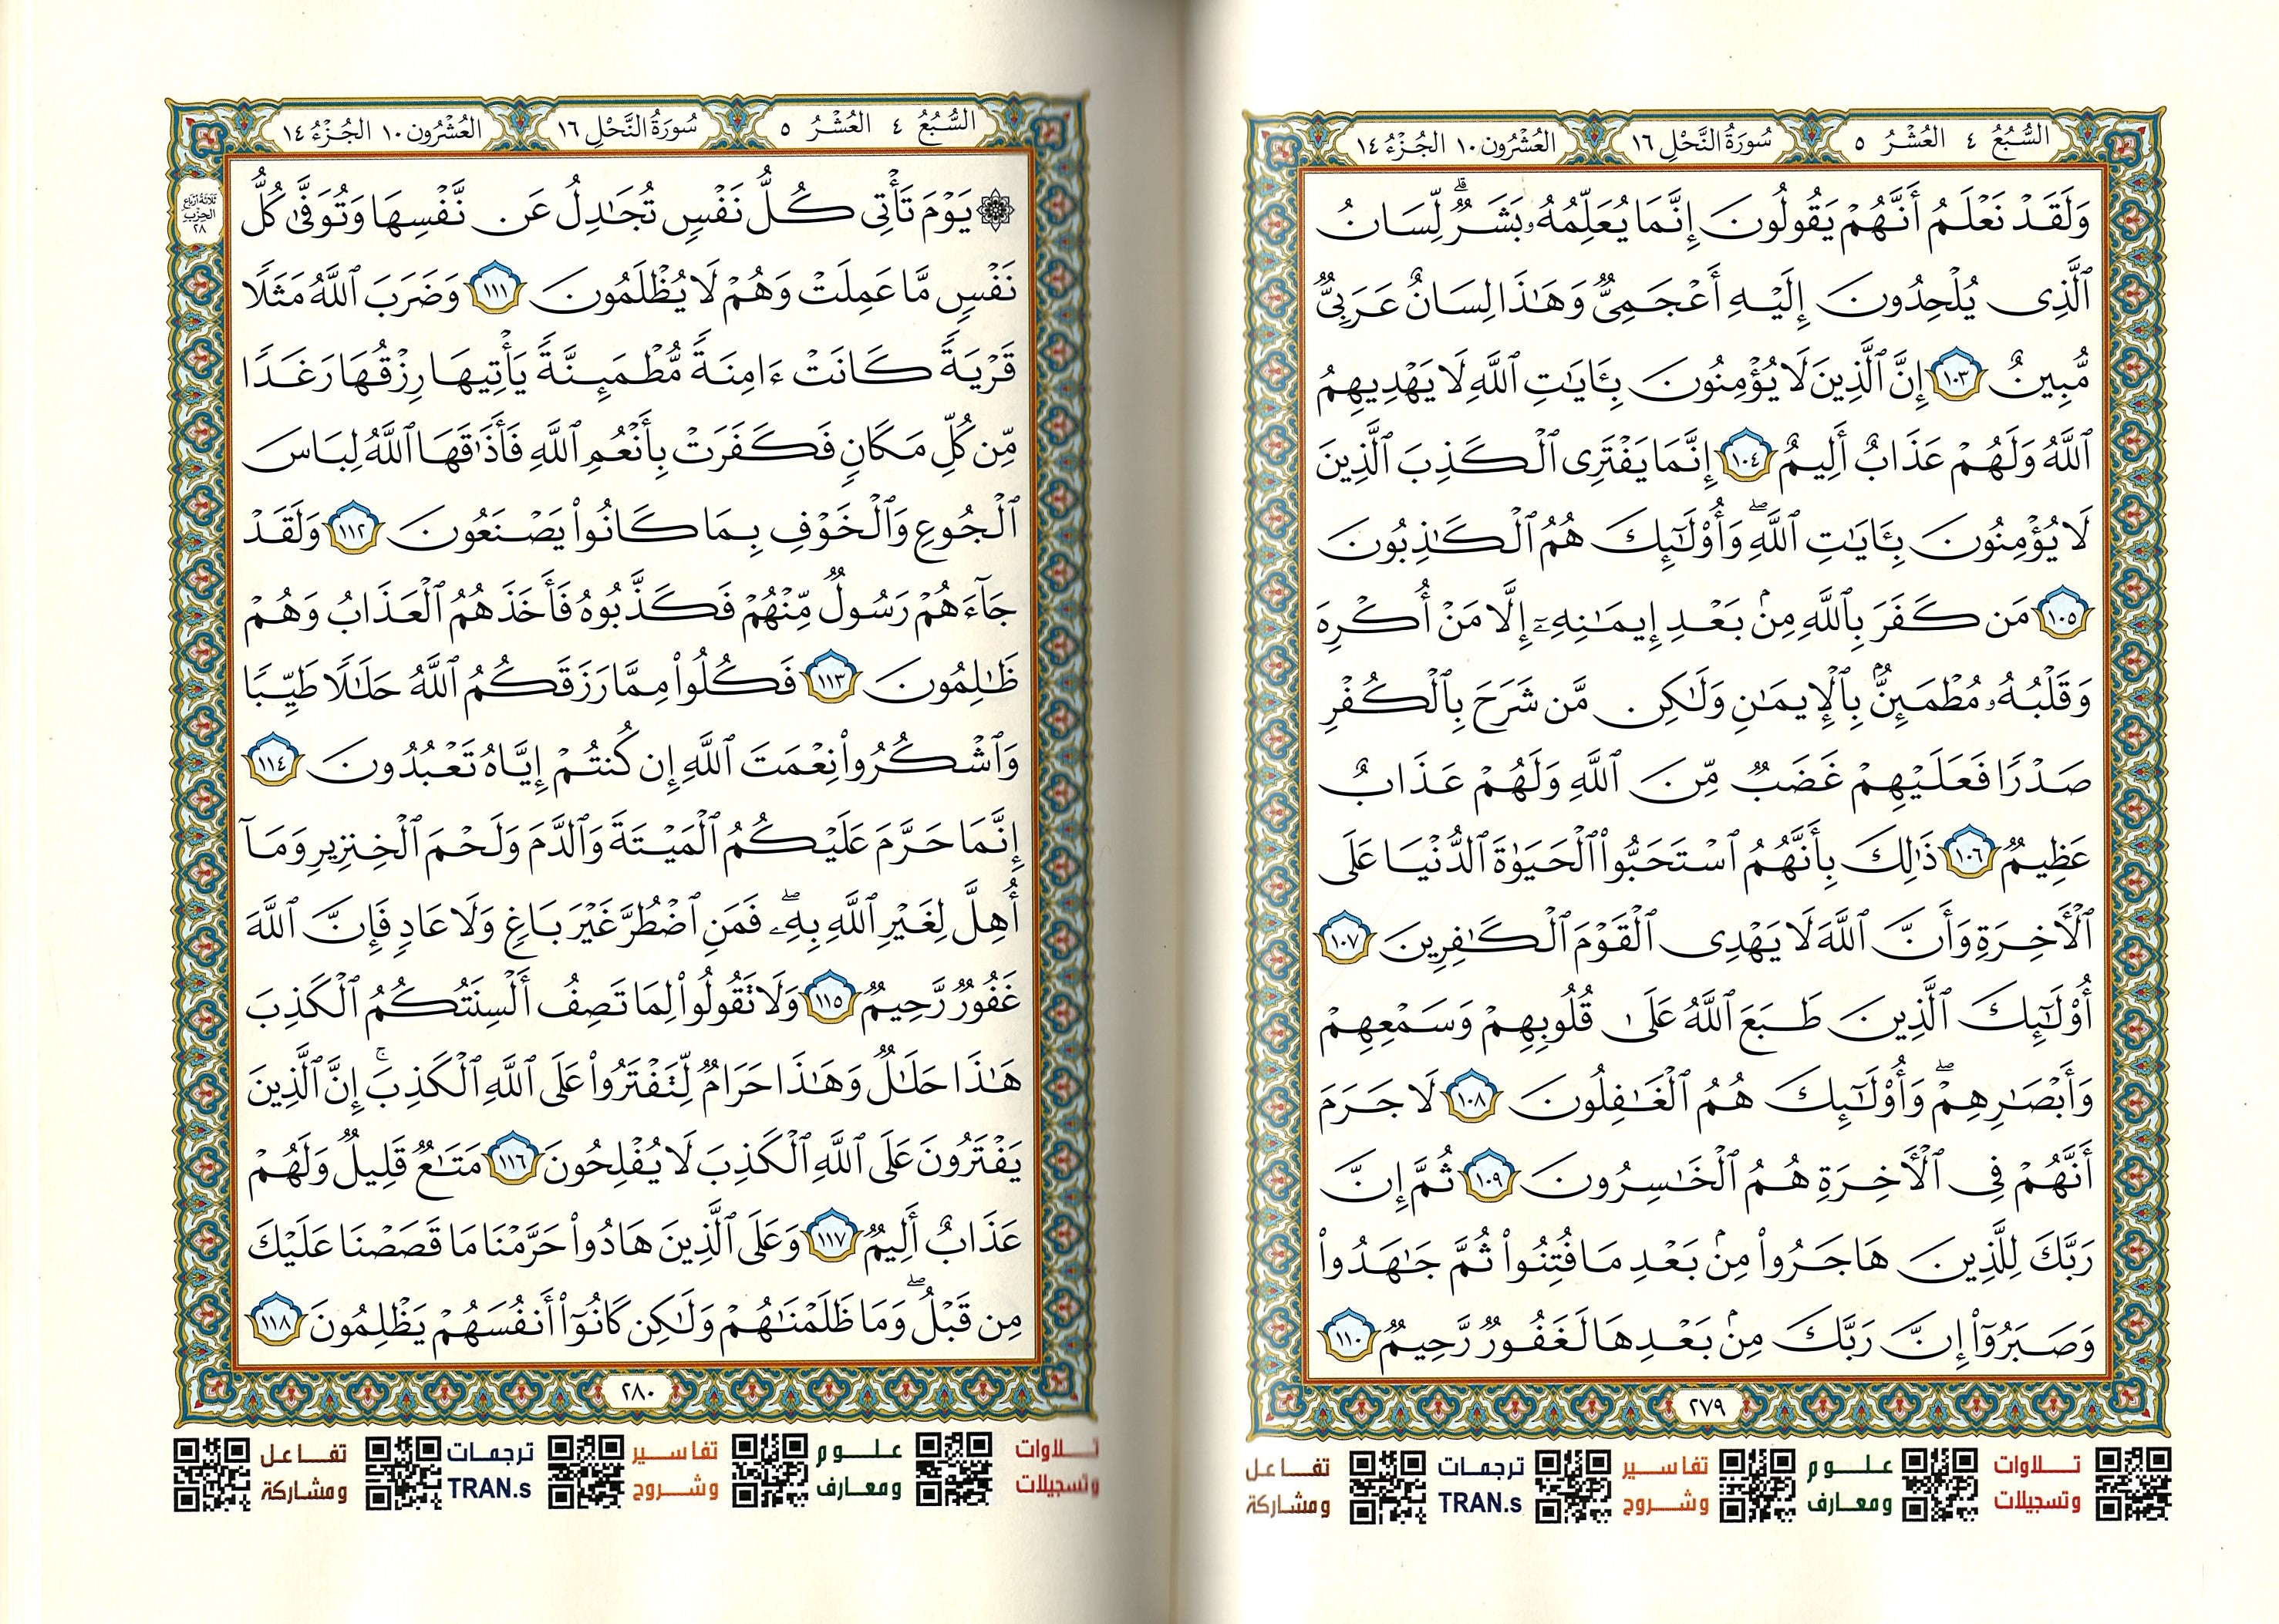 السُّبُعُ ٤ العُشْرُ ٥ سُورَةُ النَّحْلِ ١٦ العُشْرُون ١٠ الجُزْءُ ١٤
وَلَقَدْ نَعْلَمُ أَنَّهُمْ يَقُولُونَ إِنَّمَا يُعَلِّمُهُۥ بَشَرٌۗ لِّسَانُ
ٱلَّذِى يُلْحِدُونَ إِلَيْهِ أَعْجَمِىٌّ وَهَٰذَا لِسَانٌ عَرَبِىٌّ
مُّبِينٌ ١٠٣ إِنَّ ٱلَّذِينَ لَا يُؤْمِنُونَ بِـَٔايَٰتِ ٱللَّهِ لَا يَهْدِيهِمُ
ٱللَّهُ وَلَهُمْ عَذَابٌ أَلِيمٌ ١٠٤ إِنَّمَا يَفْتَرِى ٱلْكَذِبَ ٱلَّذِينَ
لَا يُؤْمِنُونَ بِـَٔايَٰتِ ٱللَّهِۖ وَأُوْلَٰٓئِكَ هُمُ ٱلْكَٰذِبُونَ
١٠٥ مَن كَفَرَ بِٱللَّهِ مِنۢ بَعْدِ إِيمَٰنِهِۦٓ إِلَّا مَنْ أُكْرِهَ
وَقَلْبُهُۥ مُطْمَئِنٌّۢ بِٱلْإِيمَٰنِ وَلَٰكِن مَّن شَرَحَ بِٱلْكُفْرِ
صَدْرًا فَعَلَيْهِمْ غَضَبٌ مِّنَ ٱللَّهِ وَلَهُمْ عَذَابٌ
عَظِيمٌ ١٠٦ ذَٰلِكَ بِأَنَّهُمُ ٱسْتَحَبُّوا۟ ٱلْحَيَوٰةَ ٱلدُّنْيَا عَلَى
ٱلْأَخِرَةِ وَأَنَّ ٱللَّهَ لَا يَهْدِى ٱلْقَوْمَ ٱلْكَٰفِرِينَ ١٠٧
أُوْلَٰٓئِكَ ٱلَّذِينَ طَبَعَ ٱللَّهُ عَلَىٰ قُلُوبِهِمْ وَسَمْعِهِمْ
وَأَبْصَٰرِهِمْۖ وَأُوْلَٰٓئِكَ هُمُ ٱلْغَٰفِلُونَ ١٠٨ لَا جَرَمَ
أَنَّهُمْ فِى ٱلْأَخِرَةِ هُمُ ٱلْخَٰسِرُونَ ١٠٩ ثُمَّ إِنَّ
رَبَّكَ لِلَّذِينَ هَاجَرُوا۟ مِنۢ بَعْدِ مَا فُتِنُوا۟ ثُمَّ جَٰهَدُوا۟
وَصَبَرُوٓا۟ إِنَّ رَبَّكَ مِنۢ بَعْدِهَا لَغَفُورٌ رَّحِيمٌ ١١٠
٢٧٩
تلاوات وتسجيلات
علوم ومعارف
تفاسير وشروح
ترجمات TRAN.s
تفاعل ومشاركة
السُّبُعُ ٤ العُشْرُ ٥ سُورَةُ النَّحْلِ ١٦ العُشْرُون ١٠ الجُزْءُ ١٤
ثَلَاثَةُ أَرْبَاعِ الحِزْبِ ٢٨
۞ يَوْمَ تَأْتِى كُلُّ نَفْسٍ تُجَٰدِلُ عَن نَّفْسِهَا وَتُوَفَّىٰ كُلُّ
نَفْسٍ مَّا عَمِلَتْ وَهُمْ لَا يُظْلَمُونَ ١١١ وَضَرَبَ ٱللَّهُ مَثَلًا
قَرْيَةً كَانَتْ ءَامِنَةً مُّطْمَئِنَّةً يَأْتِيهَا رِزْقُهَا رَغَدًا
مِّن كُلِّ مَكَانٍ فَكَفَرَتْ بِأَنْعُمِ ٱللَّهِ فَأَذَٰقَهَا ٱللَّهُ لِبَاسَ
ٱلْجُوعِ وَٱلْخَوْفِ بِمَا كَانُوا۟ يَصْنَعُونَ ١١٢ وَلَقَدْ
جَآءَهُمْ رَسُولٌ مِّنْهُمْ فَكَذَّبُوهُ فَأَخَذَهُمُ ٱلْعَذَابُ وَهُمْ
ظَٰلِمُونَ ١١٣ فَكُلُوا۟ مِمَّا رَزَقَكُمُ ٱللَّهُ حَلَٰلًا طَيِّبًا
وَٱشْكُرُوا۟ نِعْمَتَ ٱللَّهِ إِن كُنتُمْ إِيَّاهُ تَعْبُدُونَ ١١٤
إِنَّمَا حَرَّمَ عَلَيْكُمُ ٱلْمَيْتَةَ وَٱلدَّمَ وَلَحْمَ ٱلْخِنزِيرِ وَمَآ
أُهِلَّ لِغَيْرِ ٱللَّهِ بِهِۦۖ فَمَنِ ٱضْطُرَّ غَيْرَ بَاغٍ وَلَا عَادٍ فَإِنَّ ٱللَّهَ
غَفُورٌ رَّحِيمٌ ١١٥ وَلَا تَقُولُوا۟ لِمَا تَصِفُ أَلْسِنَتُكُمُ ٱلْكَذِبَ
هَٰذَا حَلَٰلٌ وَهَٰذَا حَرَامٌ لِّتَفْتَرُوا۟ عَلَى ٱللَّهِ ٱلْكَذِبَۚ إِنَّ ٱلَّذِينَ
يَفْتَرُونَ عَلَى ٱللَّهِ ٱلْكَذِبَ لَا يُفْلِحُونَ ١١٦ مَتَٰعٌ قَلِيلٌ وَلَهُمْ
عَذَابٌ أَلِيمٌ ١١٧ وَعَلَى ٱلَّذِينَ هَادُوا۟ حَرَّمْنَا مَا قَصَصْنَا عَلَيْكَ
مِن قَبْلُۖ وَمَا ظَلَمْنَٰهُمْ وَلَٰكِن كَانُوٓا۟ أَنفُسَهُمْ يَظْلِمُونَ ١١٨
٢٨٠
تلاوات وتسجيلات
علوم ومعارف
تفاسير وشروح
ترجمات TRAN.s
تفاعل ومشاركة